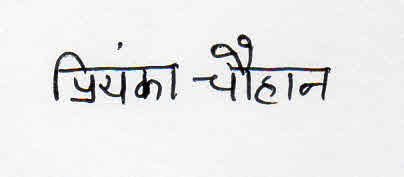 प्रियंका चौहान